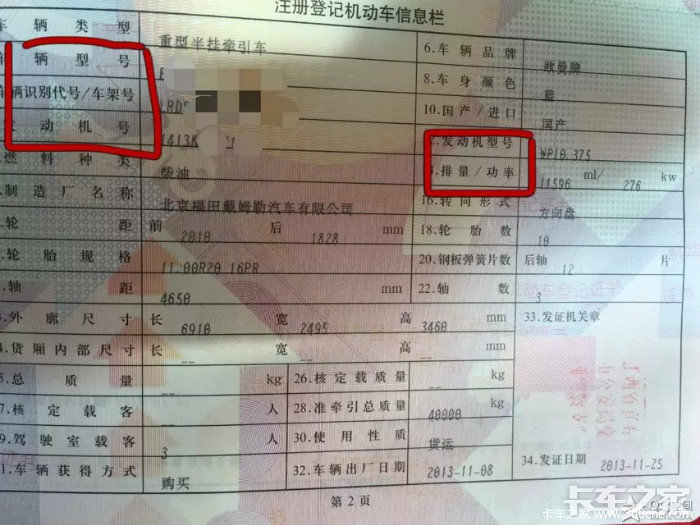 注册登记机动车信息栏
车辆类型 重型半挂牵引车 6.车辆品牌 欧曼牌
车辆型号 8.车身颜色 蓝
车辆识别代号/车架号 LRDS 10.国产/进口 国产
发动机号 1413K 12.发动机型号 WP10.375
燃料种类 柴油 排量/功率 11596 ml/ 276 kw
.制造厂名称 北京福田戴姆勒汽车有限公司 16.转向形式 方向盘
.轮距 前 2010 后 1828 mm 18.轮胎数 10
.轮胎规格 11.00R20 16PR 20.钢板弹簧片数 后轴 12 片
.轴距 4650 mm 22.轴数 3
.外廓尺寸 长 6910 宽 2495 高 3460 mm 33.发证机关章
4.货厢内部尺寸 长 -- 宽 -- 高 -- mm
5.总质量 -- kg 26.核定载质量 -- kg
7.核定载客 -- 人 28.准牵引总质量 40000 kg
9.驾驶室载客 3 人 30.使用性质 货运
1.车辆获得方式 购买 32.车辆出厂日期 2013-11-08 34.发证日期 2013-11-25
第2页
卡车之家